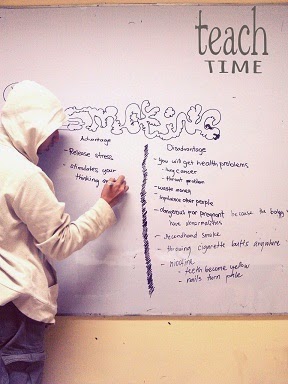 teach
TIME
SMOKING
Advantage
- Release stress
- stimulates your
thinking or
Disadvantage
- You will get health problems
- lung cancer
- problem
- waste money
- influence other people
- dangerous for pregnant because the baby
have abnormalities
- secondhand smoke
- throwing cigarette butts anywhere
- nicotine
- teeth become yellow
- nails turn pale